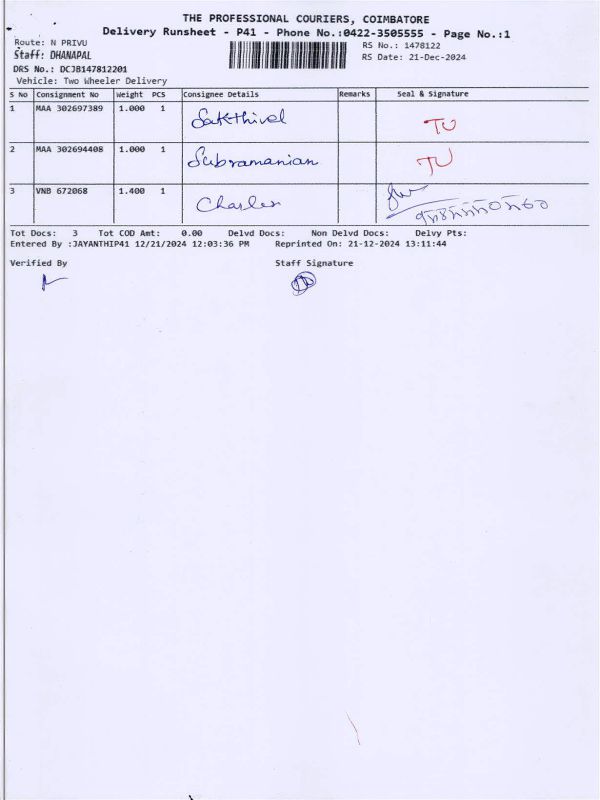 THE PROFESSIONAL COURIERS, COIMBATORE
Delivery Runsheet - P41 - Phone No.:0422-3505555 - Page No.:1
Route: N PRIVU
RS No.: 1478122
Staff: DHANAPAL
RS Date: 21-Dec-2024
DRS No.: DCJB147812201
Vehicle: Two Wheeler Delivery
S No Consignment No Weight PCS Consignee Details Remarks Seal & Signature
1 MAA 302697389 1.000 1 Sakthivel TU
2 MAA 302694408 1.000 1 Subramanian TU
3 VNB 672068 1.400 1 Charles
Tot Docs: 3 Tot COD Amt: 0.00 Delvd Docs: Non Delvd Docs: Delvy Pts:
Entered By :JAYANTHIP41 12/21/2024 12:03:36 PM Reprinted On: 21-12-2024 13:11:44
Verified By Staff Signature